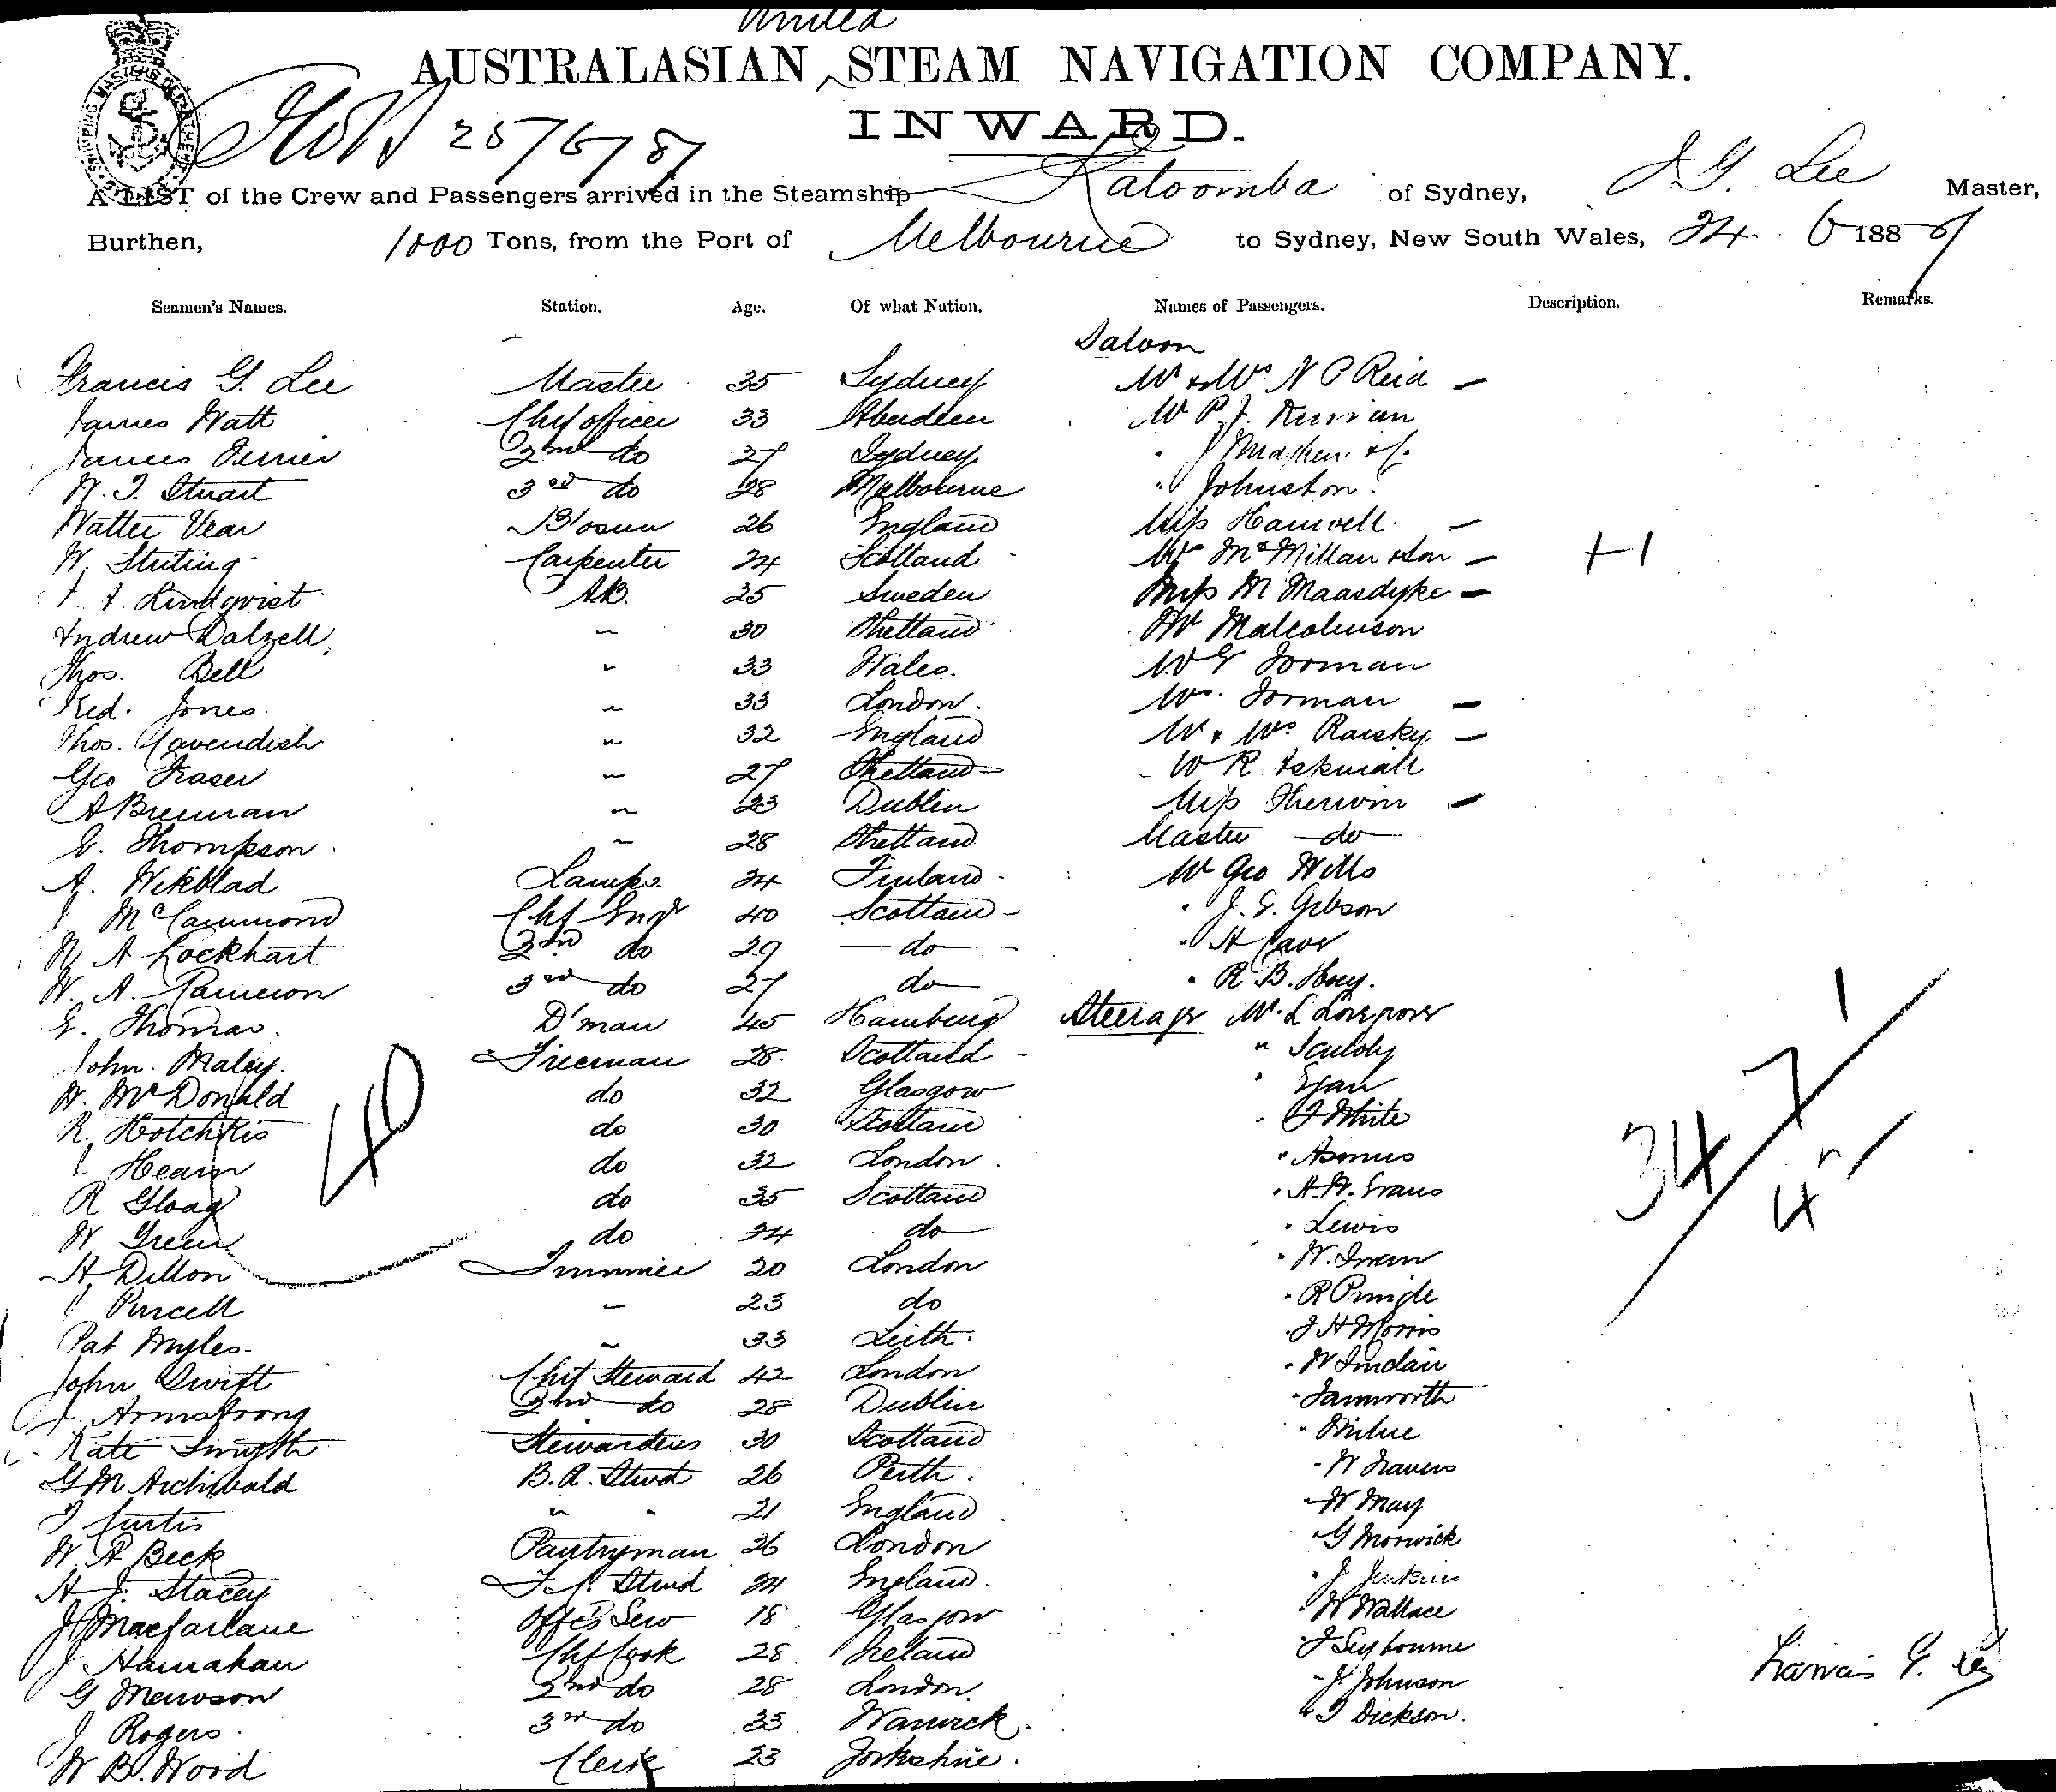 United
AUSTRALASIAN ^ STEAM NAVIGATION COMPANY.
INWARD.
25/6/87
A LIST of the Crew and Passengers arrived in the Steamship Katoomba of Sydney, F G. Lee Master,
Burthen, 1000 Tons, from the Port of Melbourne to Sydney, New South Wales, 24. 6 1887
Seamen's Names. Station. Age. Of what Nation. Names of Passengers. Description. Remarks.
Saloon
Francis G. Lee Master 35 Sydney Mr & Mrs N P Reid –
James Watt Chf officer 33 Aberdeen Mr P. J.
James Ferrier 2nd do 27 Sydney "
W. T. Stuart 3rd do 28 Melbourne " Johnston.
Walter Vear B'osun 26 England Miss Hanwell. –
W. Carpenter 24 Scotland Mrs McMillan & Son – +1
A. Lindqvist AB. 25 Sweden Miss M Maasdyke –
Andrew Dalzell " 30 Shetland Mr Malcolmson
Thos. Bell " 33 Wales. Mr Forman
Fred. Jones. " 33 London. Mrs. Forman –
Thos. Cavendish " 32 England Mr & Mrs –
Geo Fraser " 27 Shetland Mr R
A Brennan " 23 Dublin Miss Sherwin –
Thompson. " 28 Shetland Master do
A. Wikblad Lamps. 24 Finland. Mr Geo Wills
McCammond Chf Engr 40 Scotland " J. E. Gibson
A Lockhart 2nd do 29 do "
W. A. Cameron 3rd do 27 do " R. B. Hoey.
Thomas. D'man 45 Hamburg Steerage Mr. L
John. Maley. Fireman 28. Scotland "
W. McDonald do 32 Glasgow " Egan
R. Hotchkis do 30 Scotland " White
Hearn do 32 London. "
R Gloag do 35 Scotland " Evans
W Green do 24 do " Lewis
H Dillon Trimmer 20 London "
Purcell " 23 do " R Pringle
Pat Myles. " 33 Leith. " J H Morris
John Swift Chf Steward 42 London " W Sinclair
J. Armstrong 2nd do 28 Dublin " Tamworth
Kate Smyth Stewardess 30 Scotland " Milne
G M Archibald B. R. Stwd 26 Perth. " W Travers
Curtis " " 21 England. " W May
W. A Beck Pantryman 26 London " G Morwick
H J. Stacey F. C. Stwd 24 England. " J. Jenkins
J Macfarlane Offrs Serv 18 Glasgow " W Wallace
J Hanrahan Chf Cook 28 Ireland " J Seybourne
G 2nd do 28 London. " J. Johnson
J Rogers. 3rd do 33 Warwick. " Dickson.
W B. Wood Clerk 23 Yorkshire.
40
34 / 7 1
4
Francis G. Lee